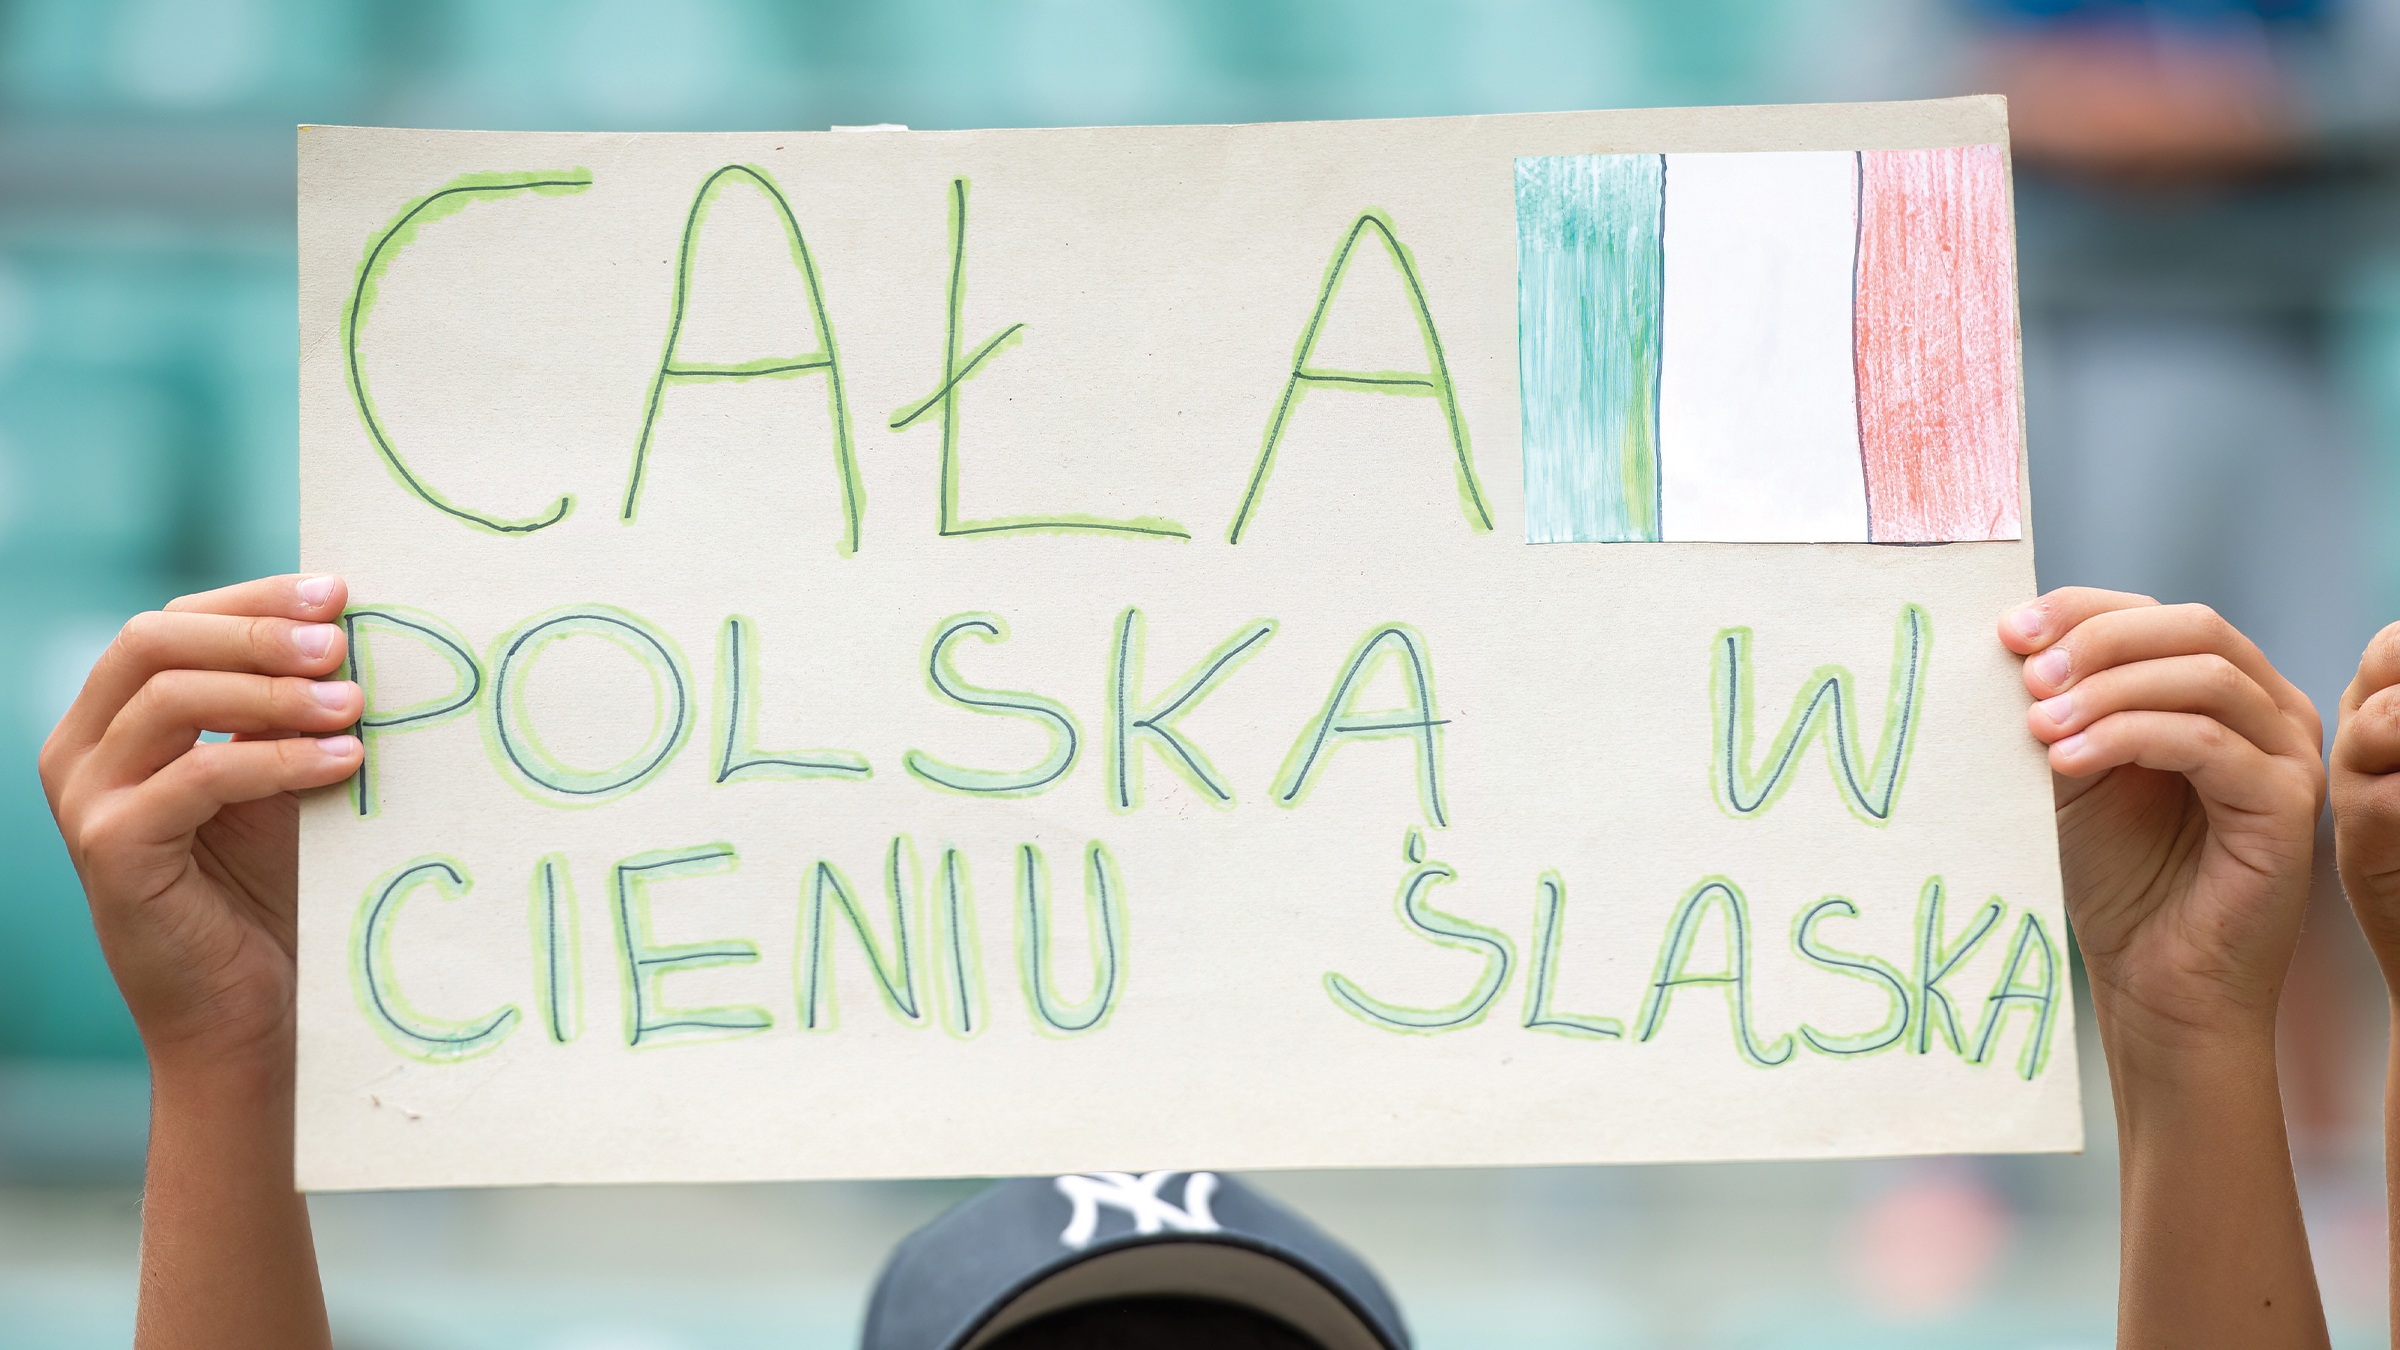 CAŁA
POLSKA W
CIENIU ŚLĄSKA
NY